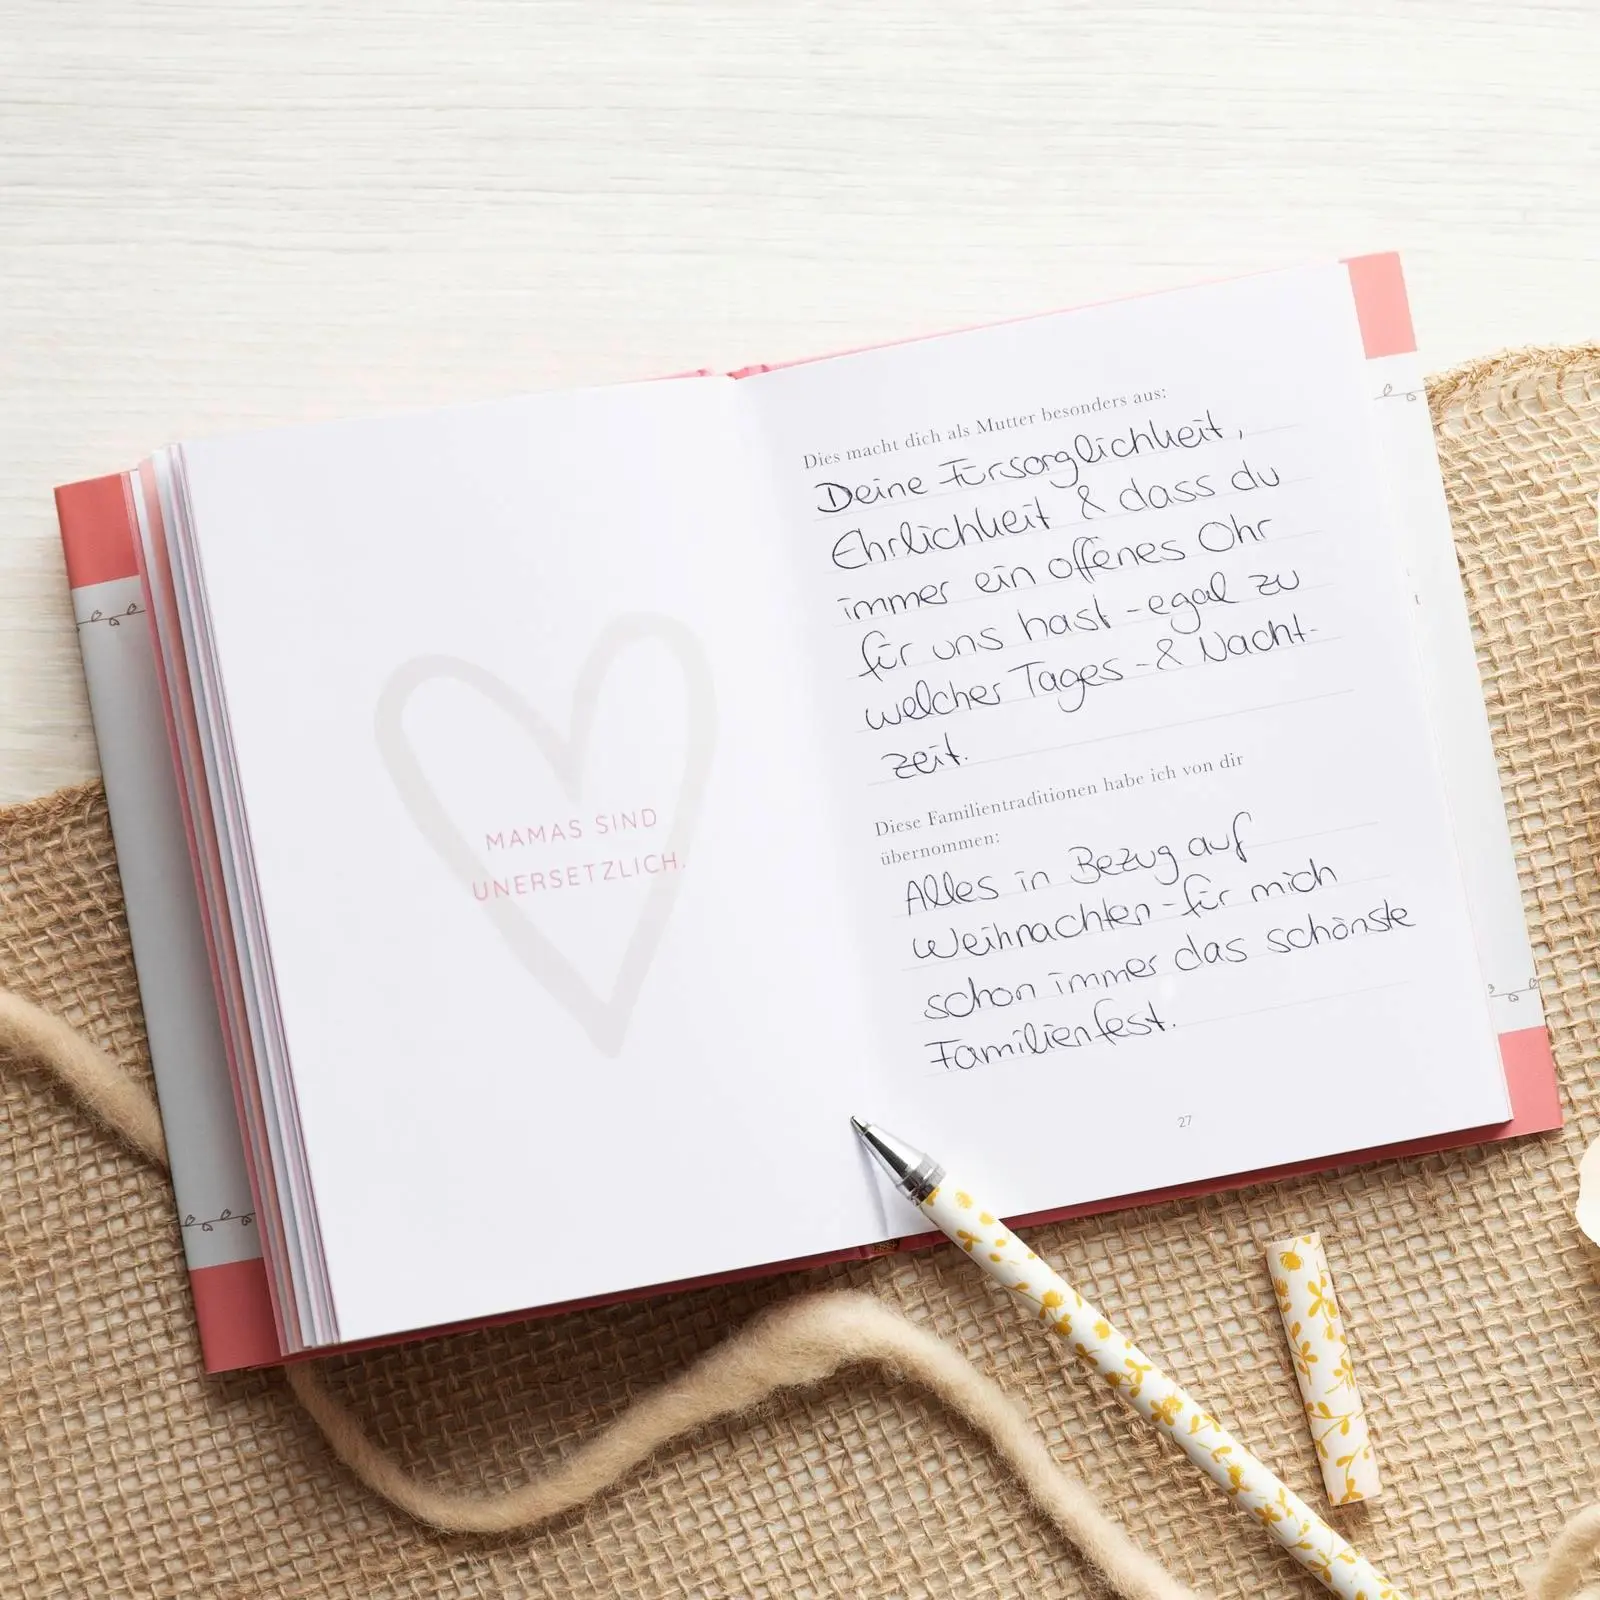 MAMAS SIND
UNERSETZLICH.
Dies macht dich als Mutter besonders aus:
Deine Fürsorglichkeit,
Ehrlichkeit & dass du
immer ein offenes Ohr
für uns hast - egal zu
welcher Tages - & Nacht-
zeit.
Diese Familientraditionen habe ich von dir
übernommen:
Alles in Bezug auf
Weihnachten - für mich
schon immer das schönste
Familienfest.
27